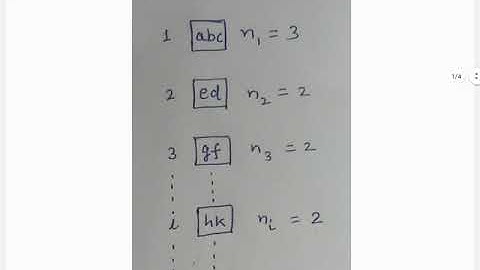 1 abc n₁ = 3
2 ed n₂ = 2
3 gf n₃ = 2
i hk nᵢ = 2
1/4